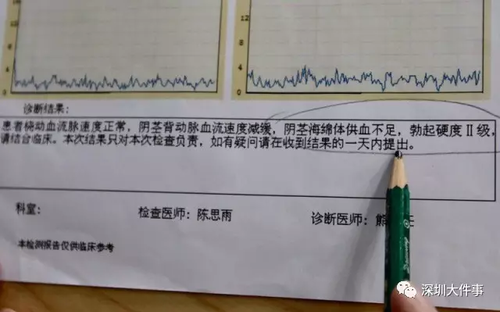 12
8
4
0
12
8
4
0
诊断结果:
患者桡动血流脉速度正常，阴茎背动脉血流速度减缓，阴茎海绵体供血不足，勃起硬度Ⅱ级，
请结合临床。本次结果只对本次检查负责，如有疑问请在收到结果的一天内提出。
科室: 检查医师: 陈思雨 诊断医师: 熊
本检测报告仅供临床参考
深圳大件事